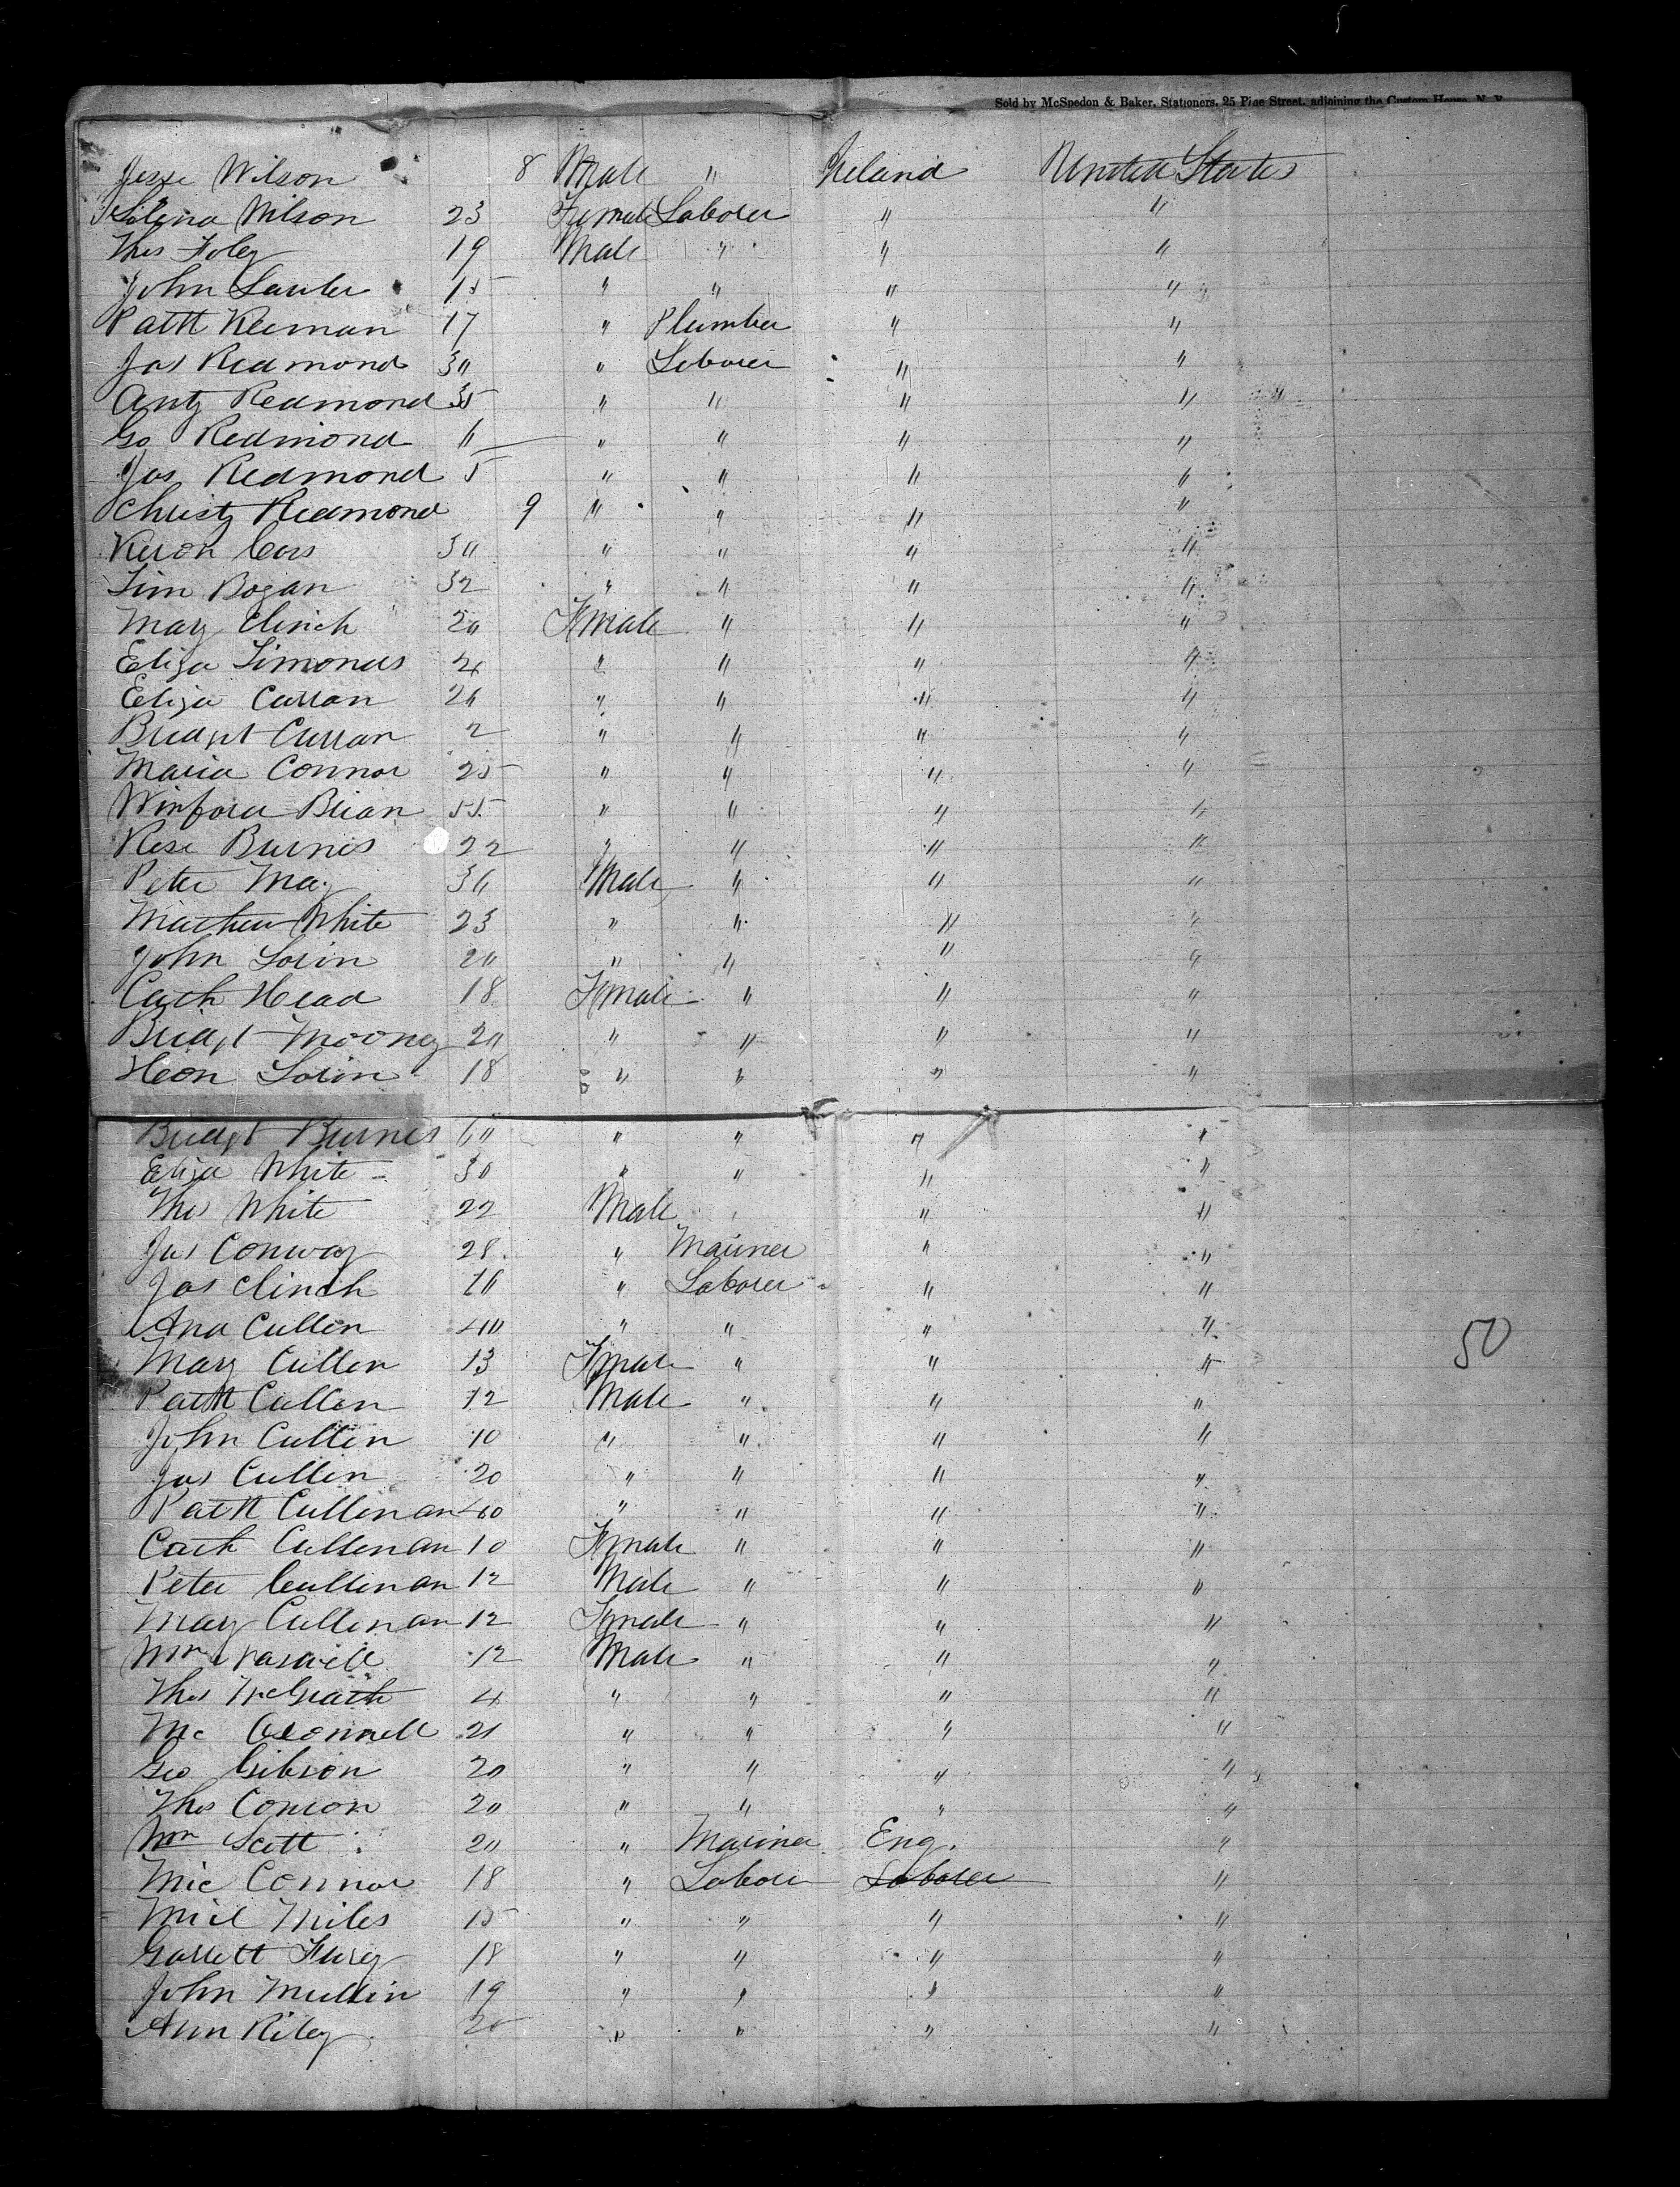 Sold by McSpedon & Baker, Stationers, 25 Pine Street, adjoining the Custom House, N. Y.
Jesse Wilson 8 Male " Ireland United States
Selena Wilson 23 Female Laborer " "
Thos Foley 19 Male " " "
John Lawler 15 " " " "
Patk Keeman 17 " Plumber " "
Jas Redmond 30 " Laborer " "
Anty Redmond 35 " " " "
Go Redmond 11 " " " "
Jas Redmond 5 " " " "
Christy Redmond 9 " " " "
Keron 30 " " " "
Tim Bogan 32 " " " "
Mary Clinch 20 Female " " "
Eliza Simonds 24 " " " "
Eliza Curran 26 " " " "
Bridget Curran 2 " " " "
Maria Connor 25 " " " "
Winford Brian 55 " " " "
Rose Burnes 22 " " " "
Peter May 30 Male " " "
Mathew White 23 " " " "
John Lorin 20 " " " "
Cath Head 18 Female " " "
Bridgt Mooney 20 " " " "
Heon Lorin 18 " " " "
Bridgt Burnes 60 " " " "
Eliza White 30 " " " "
Thos White 22 Male " "
Jas Conway 28 " Mariner " "
Jas Clinch " Laborer " "
Ana Cullen 40 " " " "
Mary Cullen 13 Female " " "
50
Patk Cullen 12 Male " " "
John Cullen 10 " " " "
Jas Cullen 20 " " " "
Patk Cullenan 40 " " " "
Cath Cullenan 10 Female " " "
Peter Cullinan 12 Male " " "
Mary Cullenan 12 Female " " "
Wm 12 Male " " "
Thos McGrath 4 " " " "
Mc Oconnell 21 " " " "
Geo Gibson 20 " " " "
Thos Conron 20 " " " "
Wm Scott 20 " Mariner Eng. "
Mic Connor 18 " Labore Laborer "
Micl Miles 15 " " " "
Garrett Furey 18 " " " "
John Mullin 19 " " " "
Ann Riley 20 " " " "